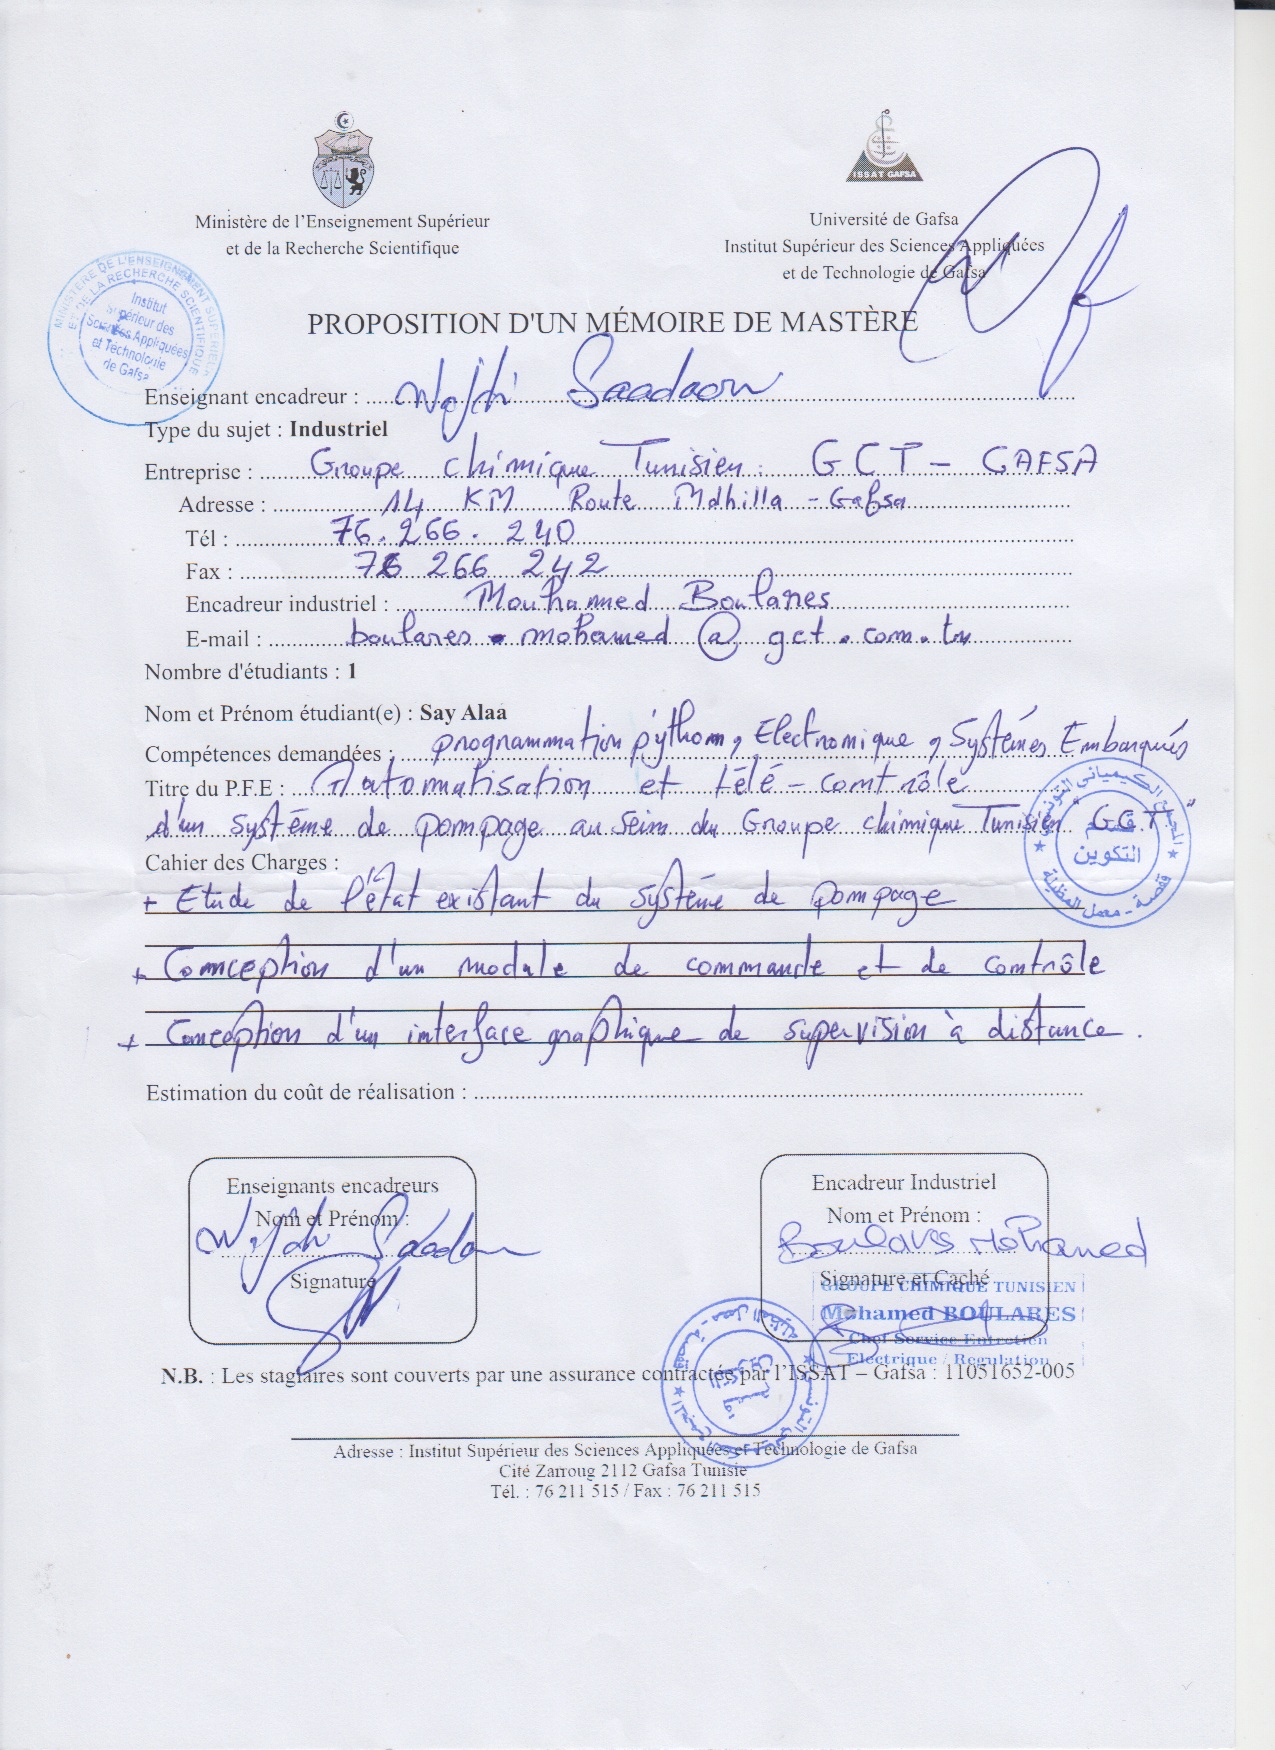 ISSAT GAFSA
Ministère de l'Enseignement Supérieur
et de la Recherche Scientifique
Université de Gafsa
Institut Supérieur des Sciences Appliquées
et de Technologie de Gafsa
MINISTÈRE DE L'ENSEIGNEMENT SUPÉRIEUR
ET DE LA RECHERCHE SCIENTIFIQUE
Institut
Supérieur des
Sciences Appliquées
et Technologie
de Gafsa
PROPOSITION D'UN MÉMOIRE DE MASTÈRE
Enseignant encadreur : Wajdi Saadaoui
Type du sujet : Industriel
Entreprise : Groupe chimique Tunisien : GCT - GAFSA
Adresse : 14 KM Route Mdhilla - Gafsa
Tél : 76.266.240
Fax : 76 266 242
Encadreur industriel : Mouhamed Boulares
E-mail : boulares.mohamed@gct.com.tn
Nombre d'étudiants : 1
Nom et Prénom étudiant(e) : Say Alaa
Compétences demandées : programmation pýthon, Electronique, Systémes Embarqués
Titre du P.F.E : Automatisation et télé-contrôle
d'un système de pompage au sein du Groupe chimique Tunisien "GCT"
المجمع الكيميائي التونسي
قسم
التكوين
قفصة - معمل المظيلة
Cahier des Charges :
+ Etude de l'état existant du système de pompage
+ Conception d'un module de commande et de contrôle
+ Conception d'un interface graphique de supervision à distance.
Estimation du coût de réalisation :
Enseignants encadreurs
Nom et Prénom :
Wajdi Saadaoui
Signature
Encadreur Industriel
Nom et Prénom :
Boulares Mohamed
Signature et Caché
GROUPE CHIMIQUE TUNISIEN
Mohamed BOULARES
Chef Service Entretien
Electrique / Regulation
N.B. : Les stagiaires sont couverts par une assurance contractée par l'ISSAT – Gafsa : 11051652-005
Adresse : Institut Supérieur des Sciences Appliquées et Technologie de Gafsa
Cité Zarroug 2112 Gafsa Tunisie
Tél. : 76 211 515 / Fax : 76 211 515